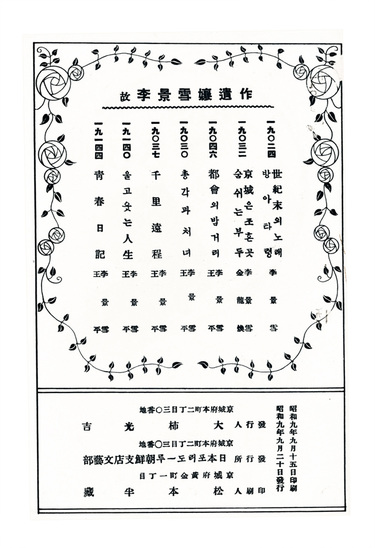 故 李景雪孃遺作
一九〇二四 世紀末의노래 李景雪
방아타령
一九〇三二 京城은조흔곳 李景雪
숨쉬는부두 金龍煥
一九〇四六 都會의밤거리 李景雪 王平
一九〇三〇 총각과처녀 李景雪 王平
一九〇三七 千里遠程 李景雪 王平
一九一四〇 울고웃는人生 李景雪 王平
一九一四四 靑春日記 李景雪 王平
昭和九年九月十五日印刷
昭和九年九月二十日發行
京城府本町二丁目三〇番地
發行人 大柿光吉
京城府本町二丁目三〇番地
發行所 日本포리도ー루朝鮮支店文藝部
京城府黃金町一丁目
印刷人 松本半藏